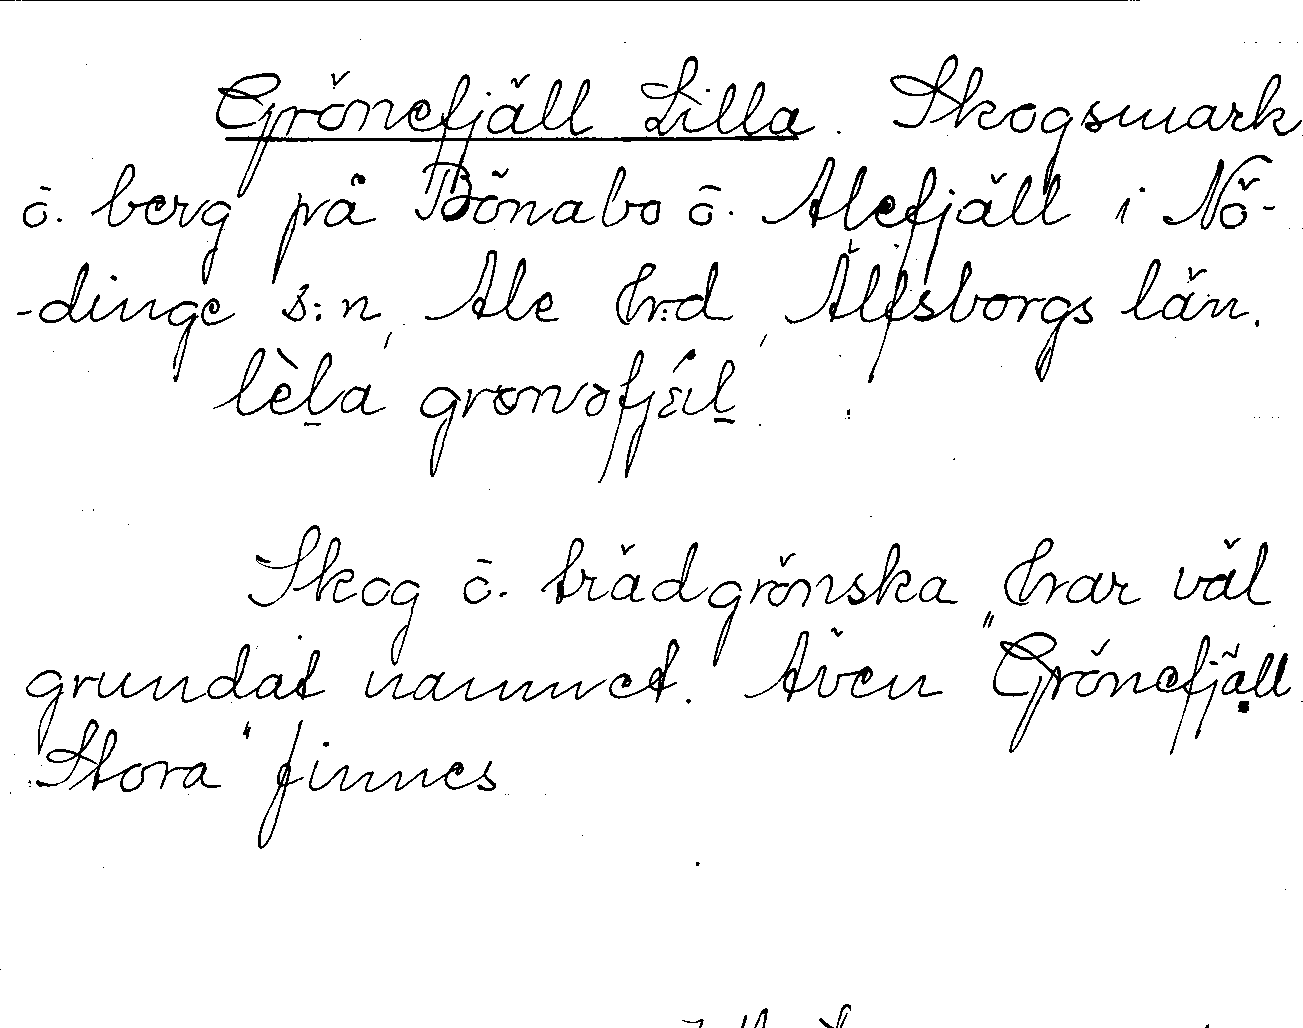 Grönefjäll Lilla. Skogsmark
ō. berg på Bönabo ō. Alefjäll i Nö-
-dinge s:n, Ale hrd, Älfsborgs län.
lèḻa grønəfjɛ́ıḻ
Skog ō. trädgrönska har väl
grundat namnet. Även "Grönefjäll
Stora" finnes